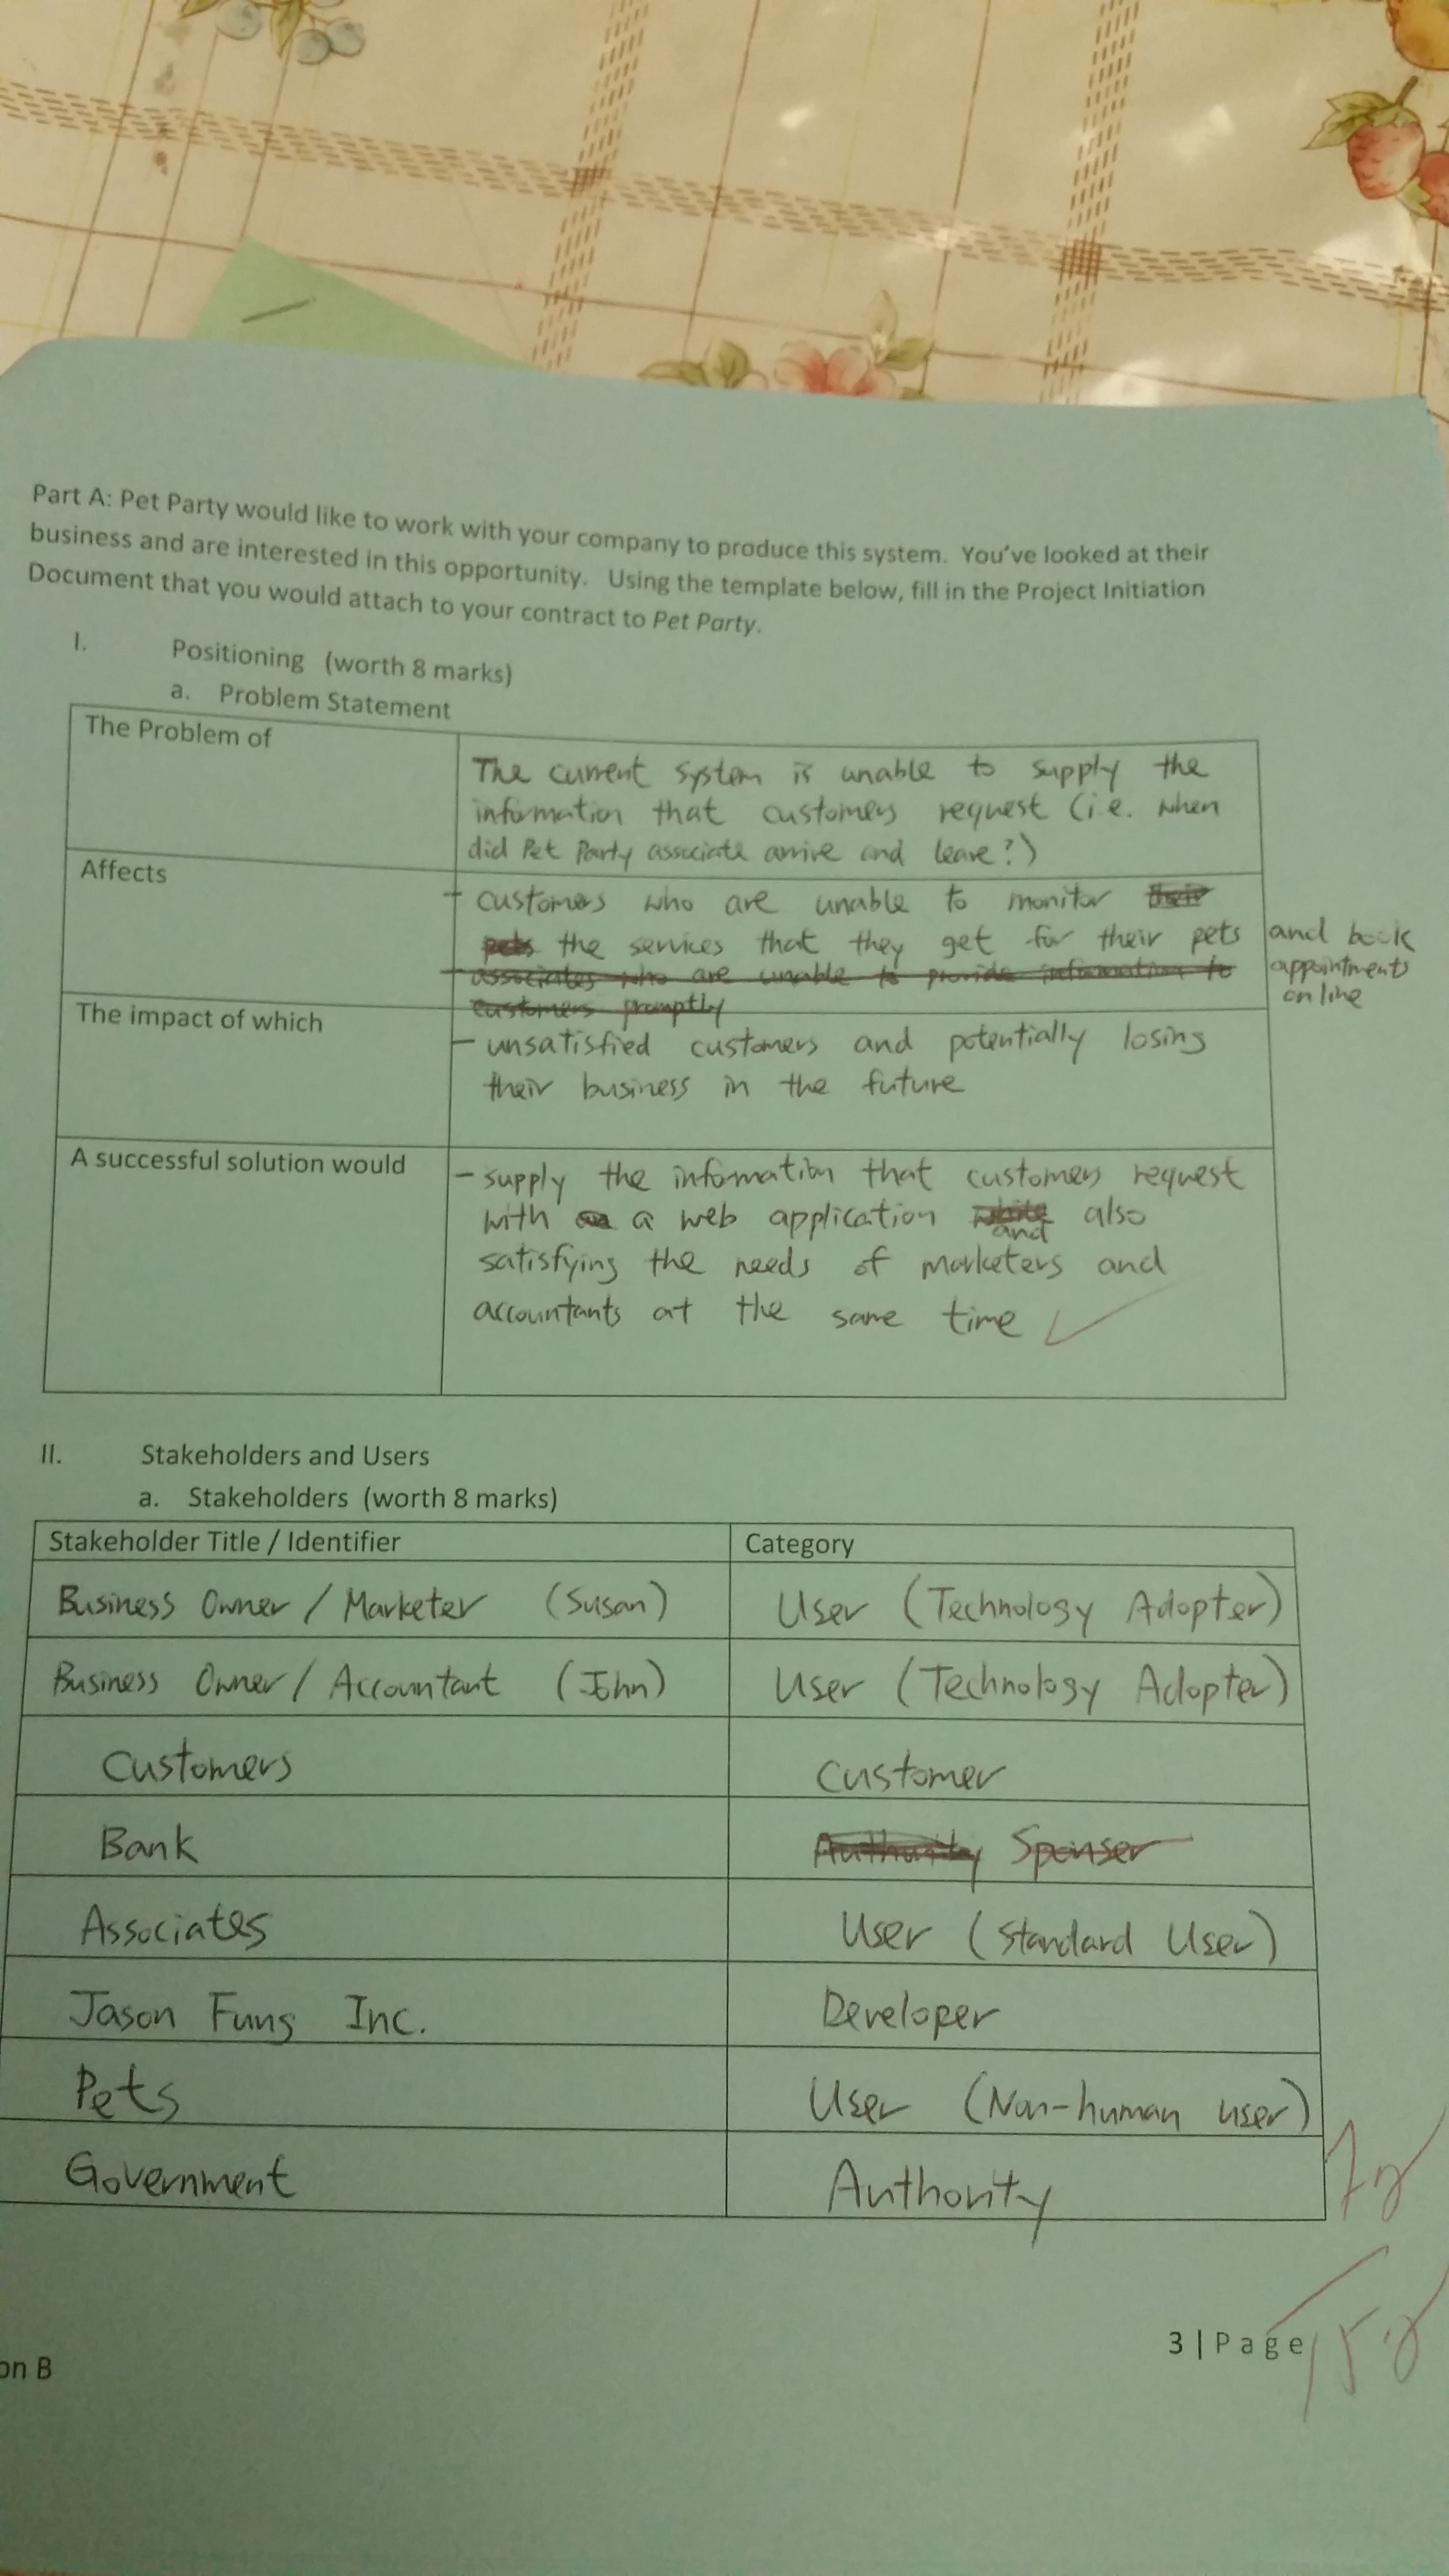 Part A: Pet Party would like to work with your company to produce this system. You've looked at their
business and are interested in this opportunity. Using the template below, fill in the Project Initiation
Document that you would attach to your contract to Pet Party.
I. Positioning (worth 8 marks)
a. Problem Statement
The Problem of
The current system is unable to supply the
information that customers request (i.e. when
did Pet Party associate arrive and leave?)
Affects
- customers who are unable to monitor their
pets the services that they get for their pets and book
appointments
online
- associates who are unable to provide information to
customers promptly
The impact of which
- unsatisfied customers and potentially losing
their business in the future
A successful solution would
- supply the information that customers request
with a web application while and also
satisfying the needs of marketers and
accountants at the same time
II. Stakeholders and Users
a. Stakeholders (worth 8 marks)
Stakeholder Title / Identifier Category
Business Owner / Marketer (Susan) User (Technology Adopter)
Business Owner / Accountant (John) User (Technology Adopter)
Customers Customer
Bank Authority Sponser
Associates User (Standard User)
Jason Fung Inc. Developer
Pets User (Non-human user)
Government Authority
3 | Page
on B